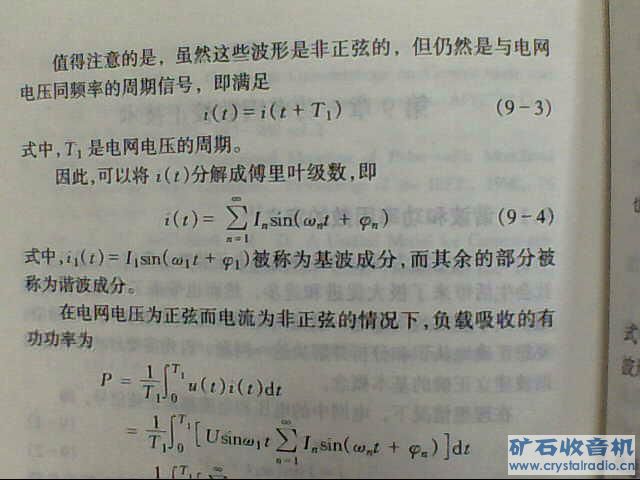 值得注意的是，虽然这些波形是非正弦的，但仍然是与电网
电压同频率的周期信号，即满足
i(t) = i(t + T₁) (9-3)
式中，T₁ 是电网电压的周期。
因此，可以将 i(t)分解成傅里叶级数，即
i(t) = ∑_{n=1}^{∞} Iₙsin(ωₙt + φₙ) (9-4)
式中，i₁(t) = I₁sin(ω₁t + φ₁)被称为基波成分，而其余的部分被
称为谐波成分。
在电网电压为正弦而电流为非正弦的情况下，负载吸收的有
功功率为
P = 1/T₁ ∫₀^{T₁} u(t)i(t)dt
= 1/T₁ ∫₀^{T₁} [Usinω₁t ∑_{n=1}^{∞} Iₙsin(ωₙt + φₙ)]dt
式
矿石收音机
www.crystalradio.cn